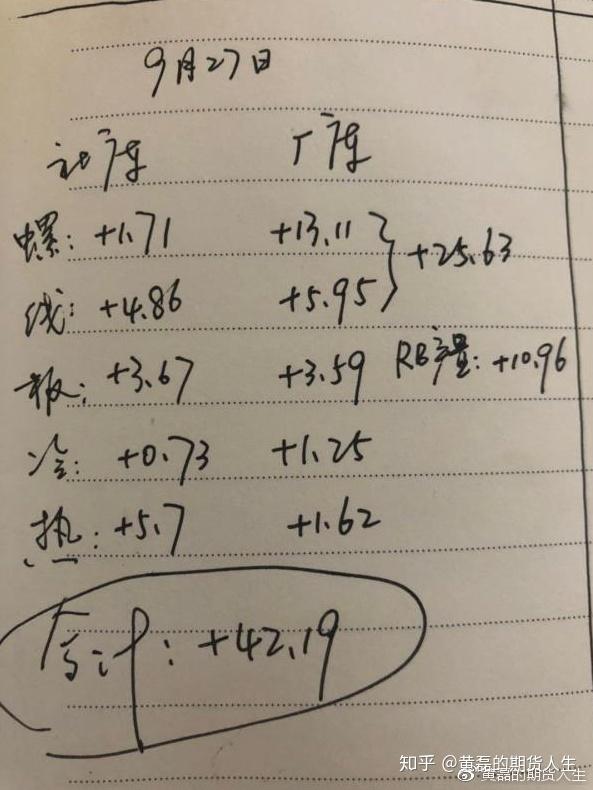 9月27日
社库 厂库
螺: +1.71 +13.11 } +25.63
线: +4.86 +5.95
板: +3.67 +3.59 RB产量: +10.96
冷: +0.73 +1.25
热: +5.7 +1.62
合计: +42.19
知乎 @黄磊的期货人生
@黄磊的期货人生